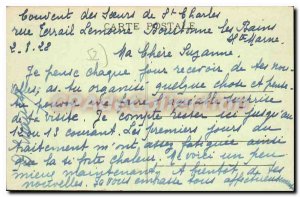 Couvent des Sœurs de St Charles
rue Terrail Lemoine Bourbonne les Bains
CARTE POSTALE
Hte Marne
2.8.28
Ma Chère Suzanne
Je pense chaque jour recevoir de tes nou-
velles, as-tu organisé quelque chose et peux-
tu
ta visite. Je compte rester ici jusqu'au
12 ou 13 courant. Les premiers jours du
traitement m'ont assez fatiguée ainsi
que la si forte chaleur. Me voici un peu
mieux maintenant. A bientôt, de tes
nouvelles. Je vous embrasse tous affectueusement